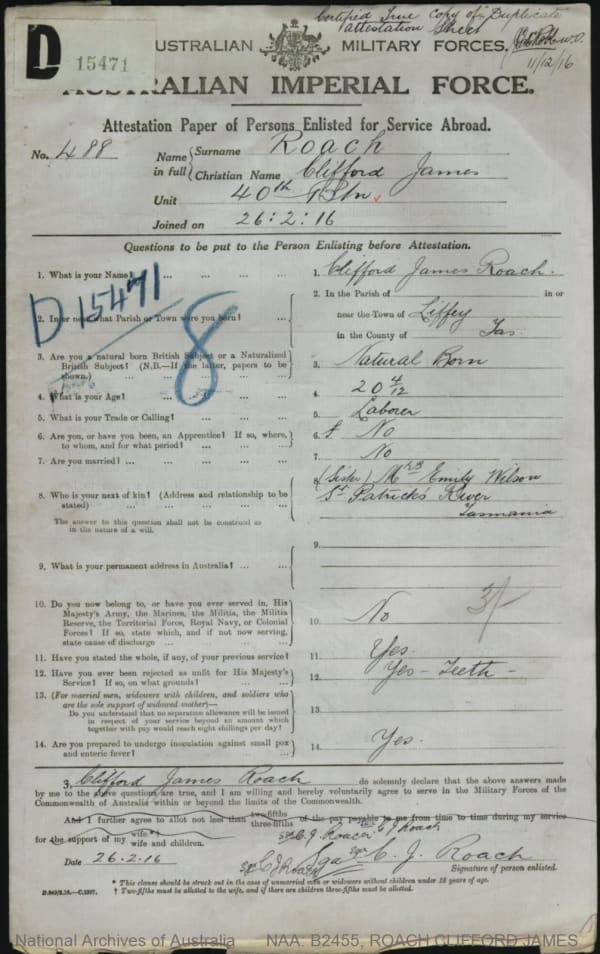 Certified True copy of Duplicate
Attestation Sheet
11/12/16
D 15471
AUSTRALIAN MILITARY FORCES.
AUSTRALIAN IMPERIAL FORCE.
Attestation Paper of Persons Enlisted for Service Abroad.
No. 488
Name in full { Surname Roach
Christian Name Clifford James
Unit 40th Btn
Joined on 26:2:16
Questions to be put to the Person Enlisting before Attestation.
1. What is your Name? ... ... ... ... 1. Clifford James Roach.
D15471
8
2. In or near what Parish or Town were you born? ... 2. In the Parish of in or
near the Town of Liffey
in the County of Tas.
3. Are you a natural born British Subject or a Naturalized
British Subject? (N.B.—If the latter, papers to be
shown.) ... ... ... ... 3. Natural Born
4. What is your Age? ... ... ... ... 4. 20 4/12
5. What is your Trade or Calling? ... ... ... 5. Laborer
6. Are you, or have you been, an Apprentice? If so, where,
to whom, and for what period? ... ... ... 6. No
7. Are you married? ... ... ... ... 7. No
8. Who is your next of kin? (Address and relationship to be
stated) ... ... ... ... 8 (Sister) Mrs Emily Wilson
St Patricks River
Tasmania
The answer to this question shall not be construed as
in the nature of a will.
9. What is your permanent address in Australia? ... ... 9.
10. Do you now belong to, or have you ever served in, His
Majesty's Army, the Marines, the Militia, the Militia
Reserve, the Territorial Force, Royal Navy, or Colonial
Forces? If so, state which, and if not now serving,
state cause of discharge ... ... ... 10. No
3/-
11. Have you stated the whole, if any, of your previous service? 11. Yes.
12. Have you ever been rejected as unfit for His Majesty's
Service? If so, on what grounds? ... ... 12. Yes - Teeth -
13. (For married men, widowers with children, and soldiers who
are the sole support of widowed mother)—
Do you understand that no separation allowance will be issued
in respect of your service beyond an amount which
together with pay would reach eight shillings per day? 13.
14. Are you prepared to undergo inoculation against small pox
and enteric fever? ... ... ... ... 14. Yes.
3, Clifford James Roach do solemnly declare that the above answers made
by me to the above questions are true, and I am willing and hereby voluntarily agree to serve in the Military Forces of the
Commonwealth of Australia within or beyond the limits of the Commonwealth.
And I further agree to allot not less than two-fifths three-fifths of the pay payable to me from time to time during my service
for the support of my wife*† wife and children.
C. J. Roach C J Roach
Date 26.2.16 C J Roach C. J. Roach
Signature of person enlisted.
* This clause should be struck out in the case of unmarried men or widowers without children under 18 years of age.
† Two-fifths must be allotted to the wife, and if there are children three-fifths must be allotted.
National Archives of Australia NAA: B2455, ROACH CLIFFORD JAMES